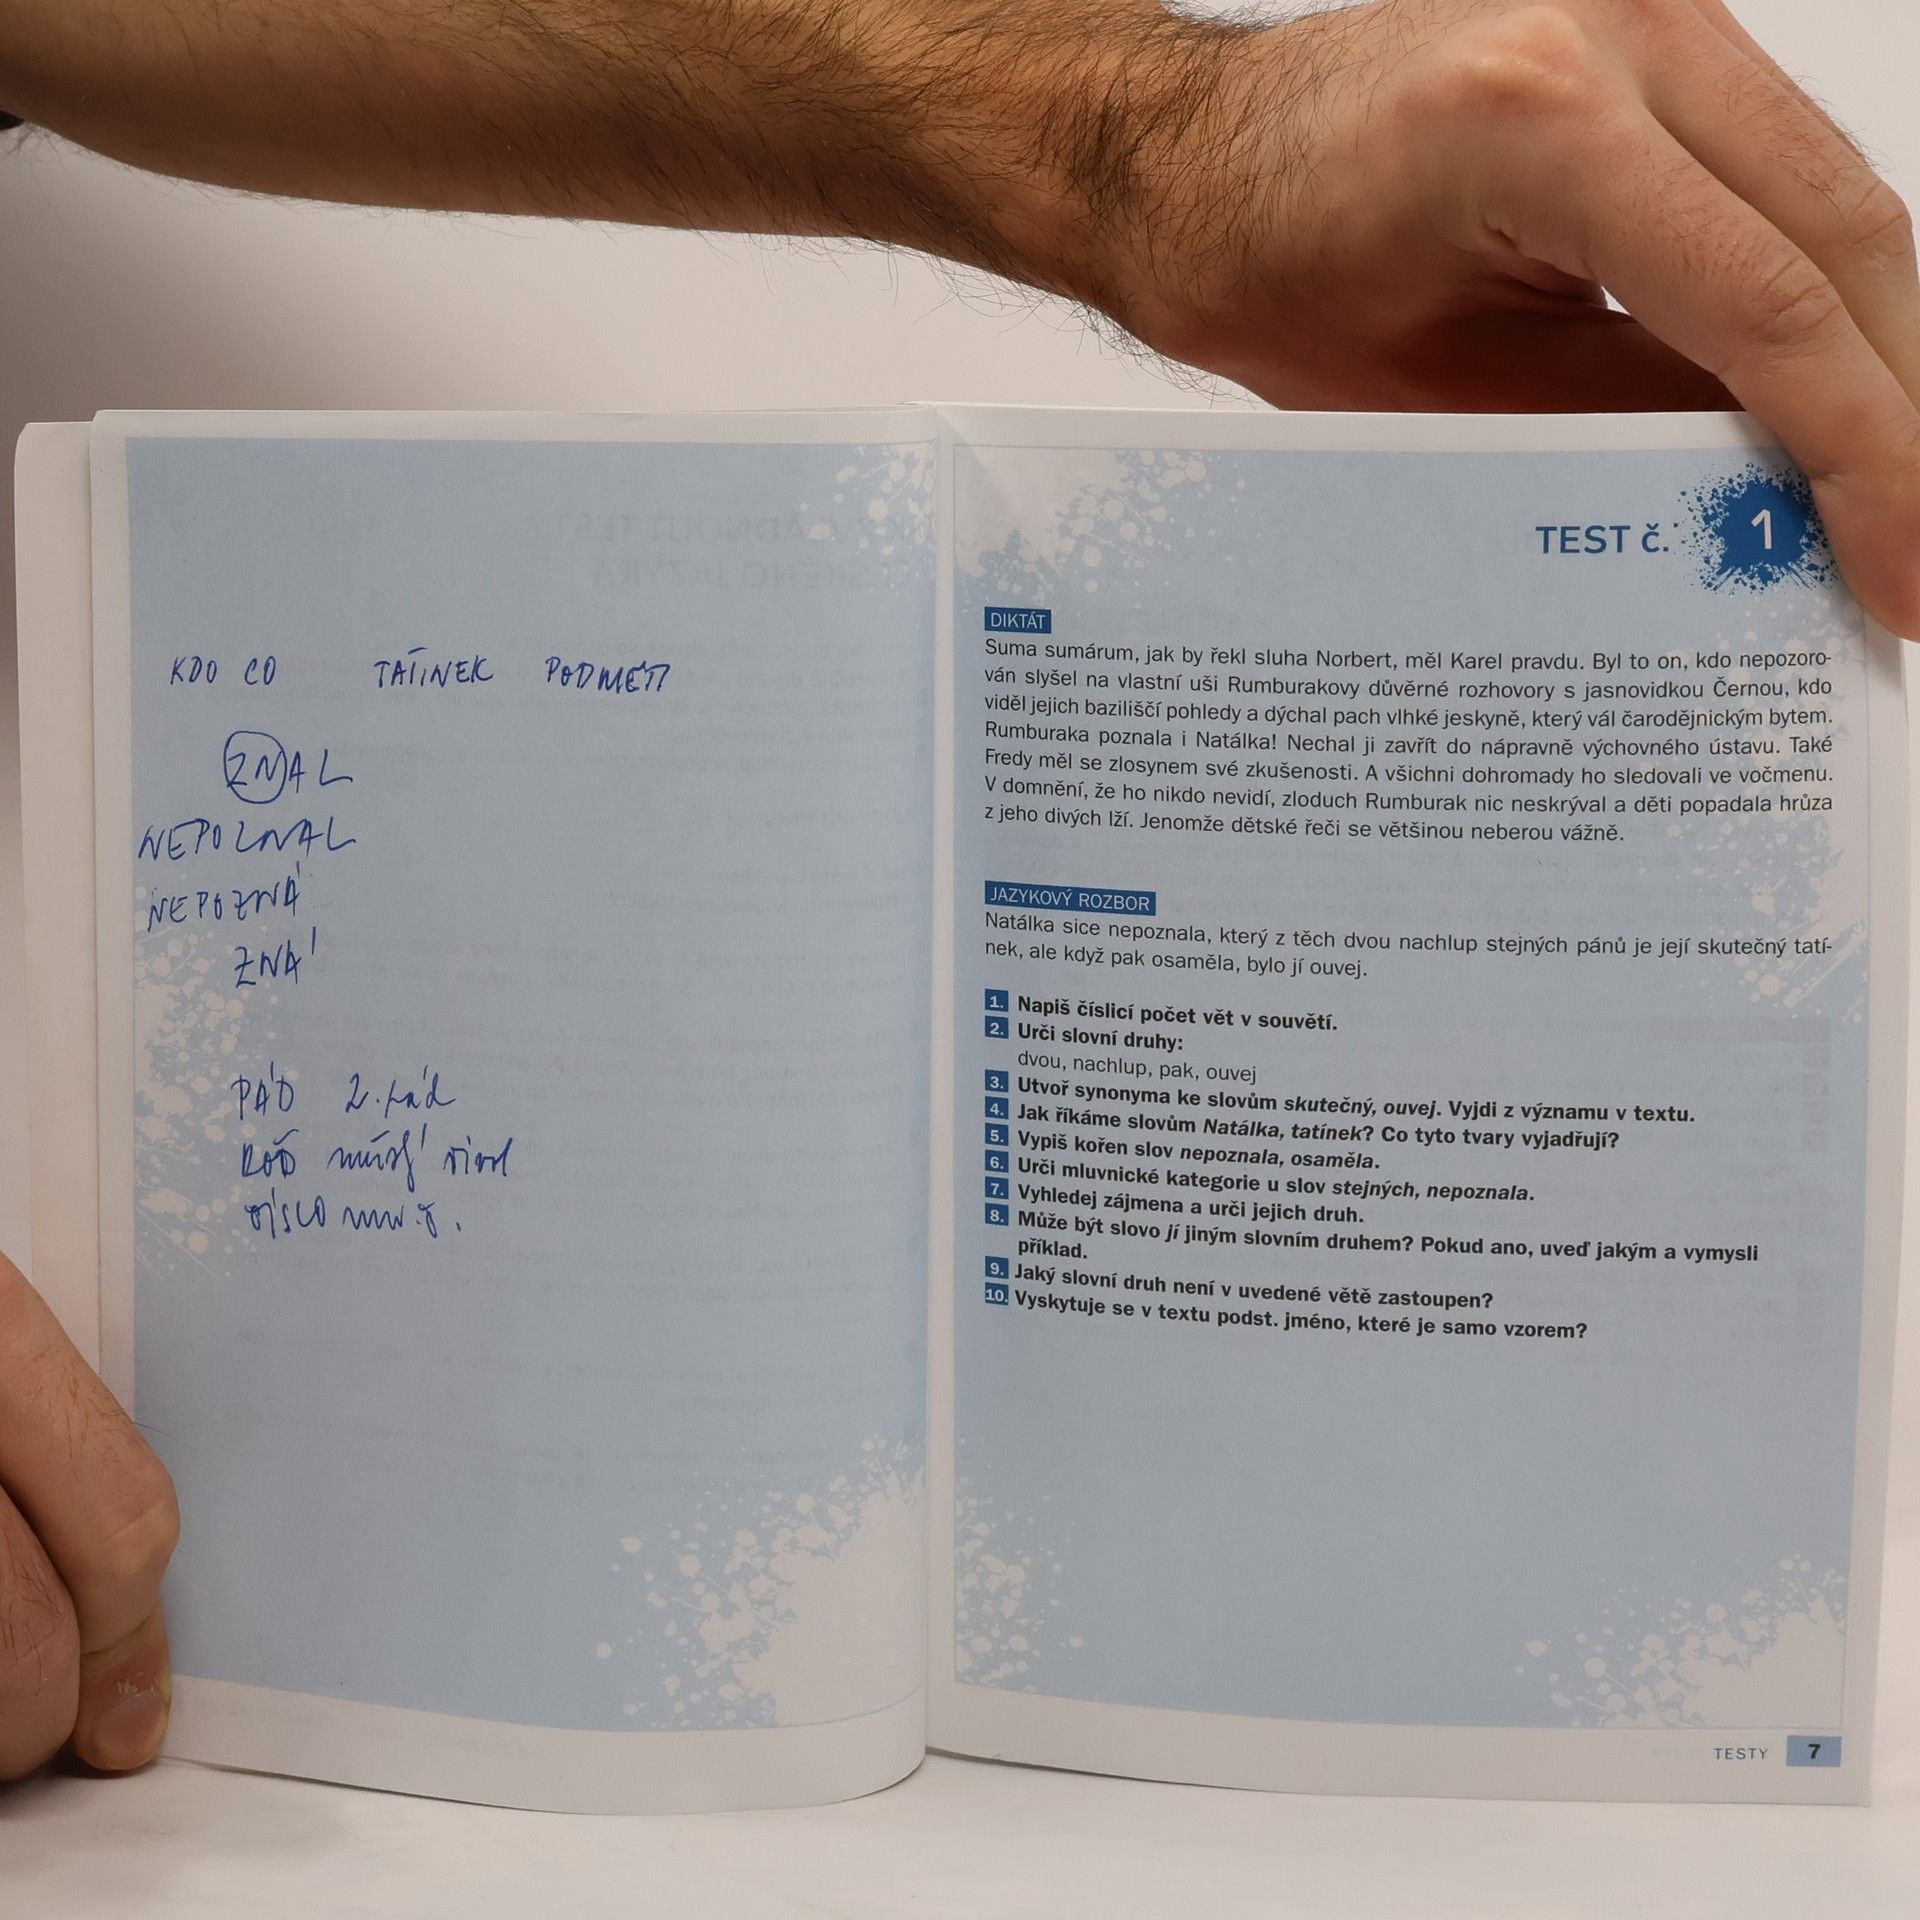 KDO CO TATÍNEK PODMĚT
ZNAL
NEPOZNAL
NEPOZNÁ
ZNÁ
PÁD 2. pád
ROD mužský
ČÍSLO
TEST č. 1
DIKTÁT
Suma sumárum, jak by řekl sluha Norbert, měl Karel pravdu. Byl to on, kdo nepozoro-
ván slyšel na vlastní uši Rumburakovy důvěrné rozhovory s jasnovidkou Černou, kdo
viděl jejich baziliščí pohledy a dýchal pach vlhké jeskyně, který vál čarodějnickým bytem.
Rumburaka poznala i Natálka! Nechal ji zavřít do nápravně výchovného ústavu. Také
Fredy měl se zlosynem své zkušenosti. A všichni dohromady ho sledovali ve vočmenu.
V domnění, že ho nikdo nevidí, zloduch Rumburak nic neskrýval a děti popadala hrůza
z jeho divých lží. Jenomže dětské řeči se většinou neberou vážně.
JAZYKOVÝ ROZBOR
Natálka sice nepoznala, který z těch dvou nachlup stejných pánů je její skutečný tatí-
nek, ale když pak osaměla, bylo jí ouvej.
1. Napiš číslicí počet vět v souvětí.
2. Urči slovní druhy:
dvou, nachlup, pak, ouvej
3. Utvoř synonyma ke slovům skutečný, ouvej. Vyjdi z významu v textu.
4. Jak říkáme slovům Natálka, tatínek? Co tyto tvary vyjadřují?
5. Vypiš kořen slov nepoznala, osaměla.
6. Urči mluvnické kategorie u slov stejných, nepoznala.
7. Vyhledej zájmena a urči jejich druh.
8. Může být slovo jí jiným slovním druhem? Pokud ano, uveď jakým a vymysli
příklad.
9. Jaký slovní druh není v uvedené větě zastoupen?
10. Vyskytuje se v textu podst. jméno, které je samo vzorem?
TESTY 7